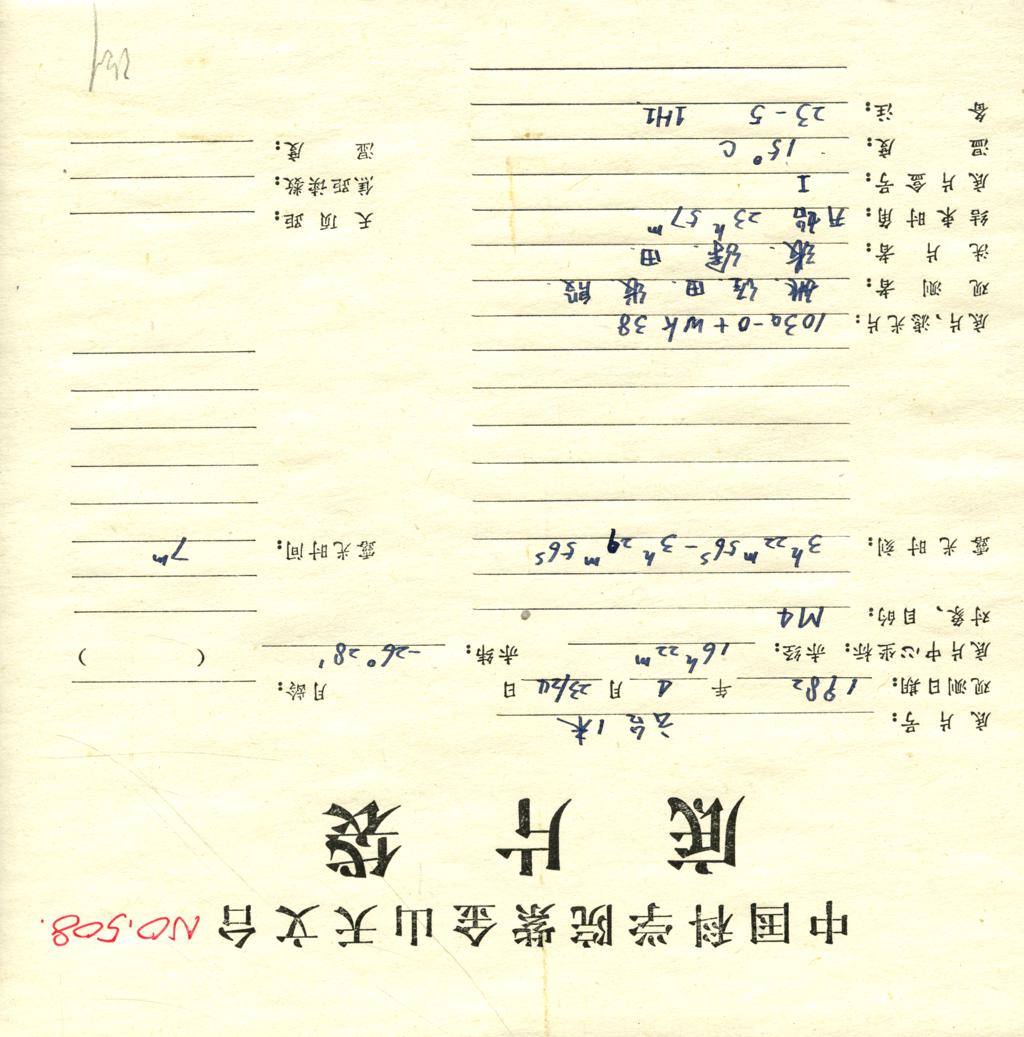 中国科学院紫金山天文台 NO.508.
底片袋
底片号： 云台1米
观测日期： 1982 年 4 月 23/24 日 月龄：
底片中心坐标： 赤经： 16h 22m 赤纬： -26° 28' （ ）
对象、目的： M4
露光时刻： 3h 22m 56s - 3h 29m 56s 露光时间： 7m
底片、滤光片： 103a-O + WK 38
观测者： 姚 田 张 殷
洗片者： 张 田
结束时角： 开始 23h 57m 天顶距：
底片盒号： I 焦距读数：
温度： 15°C 湿度：
备注： 23-5 1H1